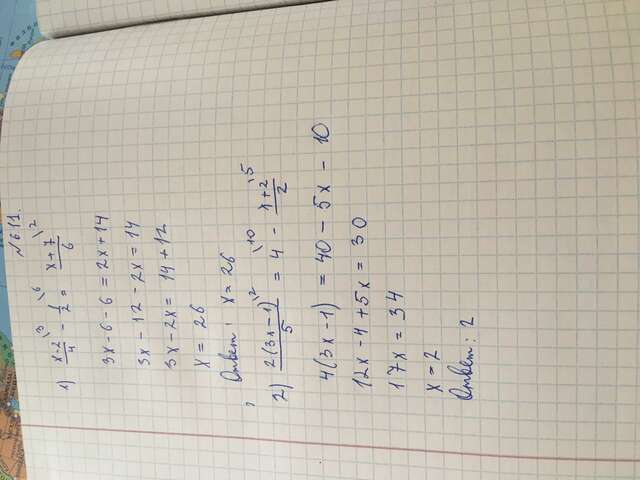 №611.
1) \frac{x-2}{4}^{\3} - \frac{1}{2}^{\6} = \frac{x+7}{6}^{\2}
3x - 6 - 6 = 2x + 14
3x - 12 - 2x = 14
3x - 2x = 14 + 12
x = 26
Ответ: x = 26
2) \frac{2(3x-1)}{5}^{\2} = 4^{\10} - \frac{x+2}{2}^{\5}
4(3x-1) = 40 - 5x - 10
12x - 4 + 5x = 30
17x = 34
x = 2
Ответ: 2